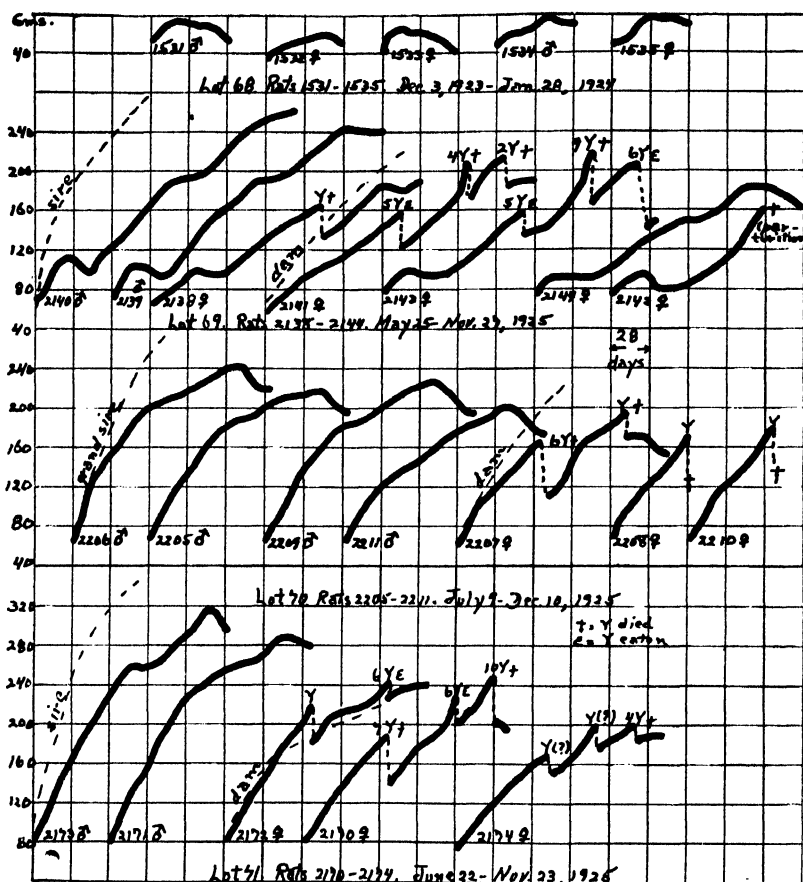 Gms.
40
1531♂ 1532♀ 1533♀ 1534♂ 1535♀
Lot 68 Rats 1531-1535 Dec 3, 1923-Jan 28, 1924
240
200
160
120
80
40
sire
dam
Y+
5YE
4Y+
2Y+
5YE
9Y+
6YE
+
(par-
turition)
2140♂ 2139♂ 2138♀ 2141♀ 2143♀ 2144♀ 2142♀
Lot 69. Rats 2138-2144. May 25-Nov. 29, 1925
28
days
240
200
160
120
80
40
grand sire
dam
6Y+
Y+
Y
+
Y
+
2206♂ 2205♂ 2209♂ 2211♂ 2207♀ 2208♀ 2210♀
Lot 70 Rats 2205-2211. July 9-Dec. 10, 1925
+ = Y died
e = Y eaten
320
280
240
200
160
120
80
sire
dam
Y
6YE
Y+
6YE
10Y+
Y(?)
Y(?)
4Y+
2173♂ 2171♂ 2172♀ 2170♀ 2174♀
Lot 71 Rats 2170-2174. June 22-Nov. 23, 1925